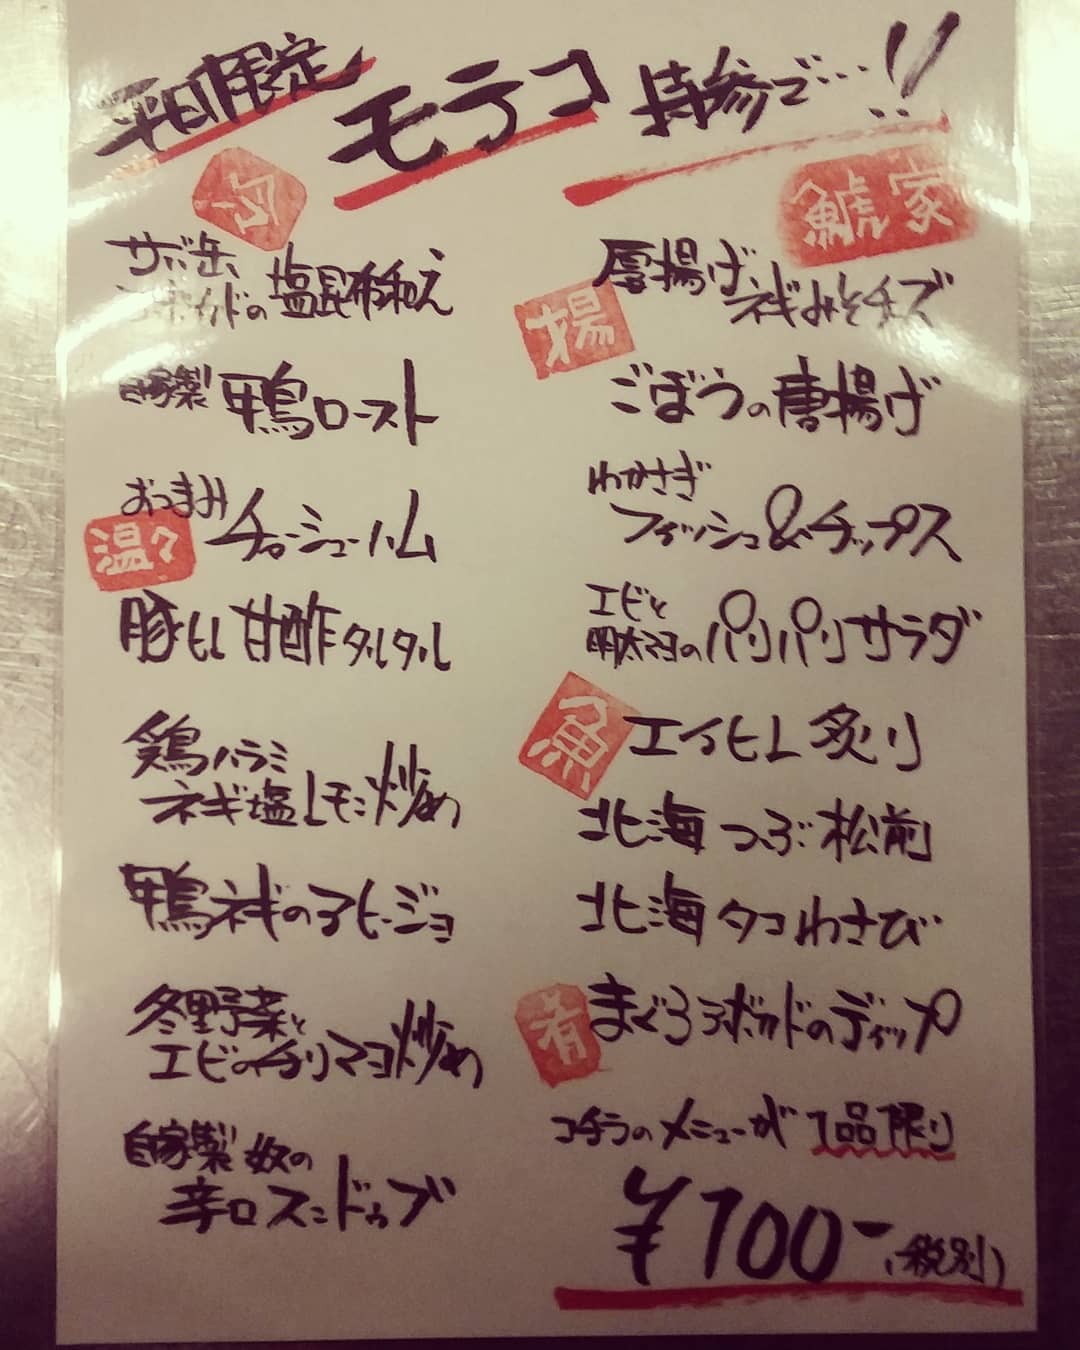 平日限定 モテコ 持参で…!!
鯱家
冷
サバ缶、
アボカドの 塩昆布和え
自家製 鴨ロースト
おつまみ
チャーシューハム
温々
豚ヒレ 甘酢タルタル
鶏ハラミ
ネギ塩レモン炒め
鴨ネギのアヒージョ
冬野菜と
エビのチリマヨ炒め
自家製 奴の
辛口スンドゥブ
揚
厚揚げ、
ネギみそチーズ
ごぼうの唐揚げ
わかさぎ
フィッシュ&チップス
エビと
明太マヨのパリパリサラダ
魚
エイヒレ 炙り
北海 つぶ松前
北海 タコわさび
肴
まぐろアボカドのディップ
コチラのメニューが 1品限り
¥100-(税別)